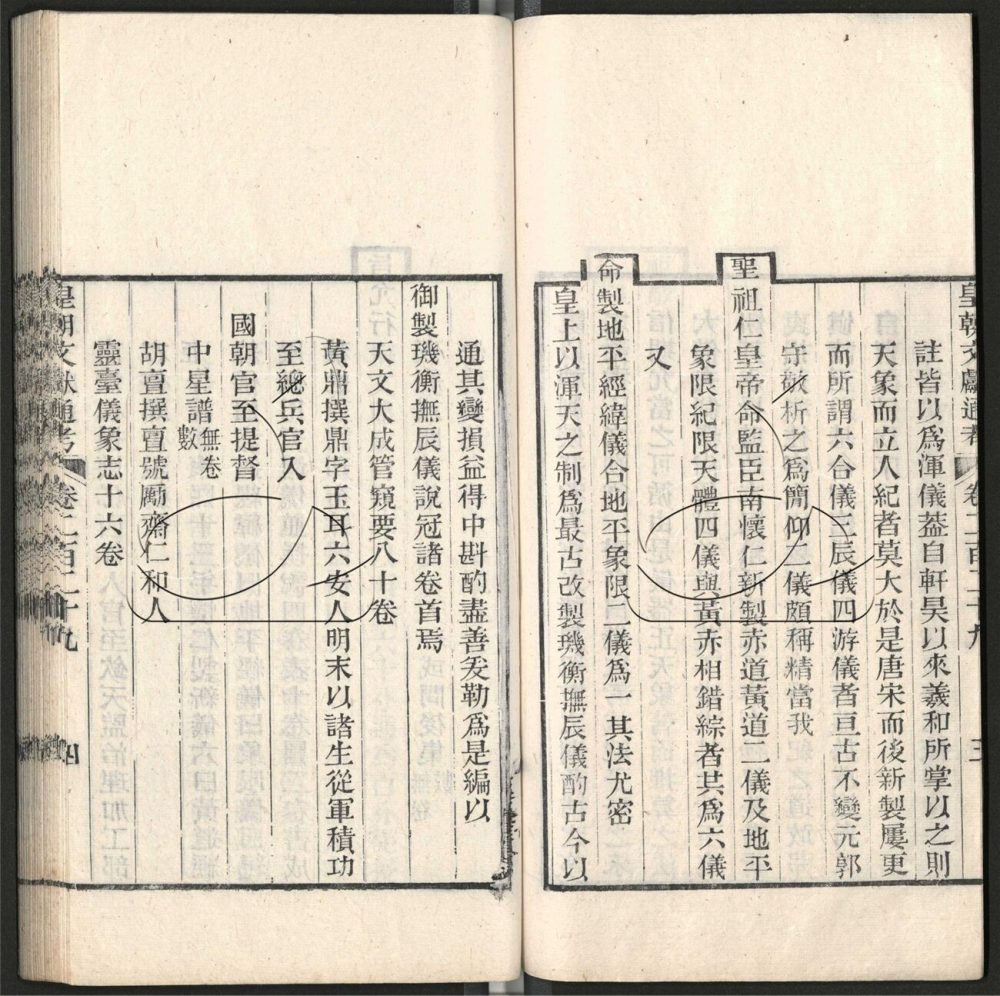 皇朝文獻通考 卷二百二十九 三
註皆以爲渾儀葢自軒昊以來羲和所掌以之則
天象而立人紀者莫大於是唐宋而後新製屢更
而所謂六合儀三辰儀四游儀者亘古不變元郭
守敬析之爲簡仰二儀頗稱精當我
聖祖仁皇帝命監臣南懷仁新製赤道黃道二儀及地平
象限紀限天體四儀與黃赤相錯綜者其爲六儀
又
命製地平經緯儀合地平象限二儀爲一其法尤密
皇上以渾天之制爲最古改製璣衡撫辰儀酌古今以
通其變損益得中斟酌盡善爰勒爲是編以
御製璣衡撫辰儀說冠諸卷首焉
天文大成管窺要八十卷
黃鼎撰鼎字玉耳六安人明末以諸生從軍積功
至總兵官入
國朝官至提督
中星譜無卷數
胡亶撰亶號勵齋仁和人
靈臺儀象志十六卷
皇朝文獻通考 卷二百二十九 四